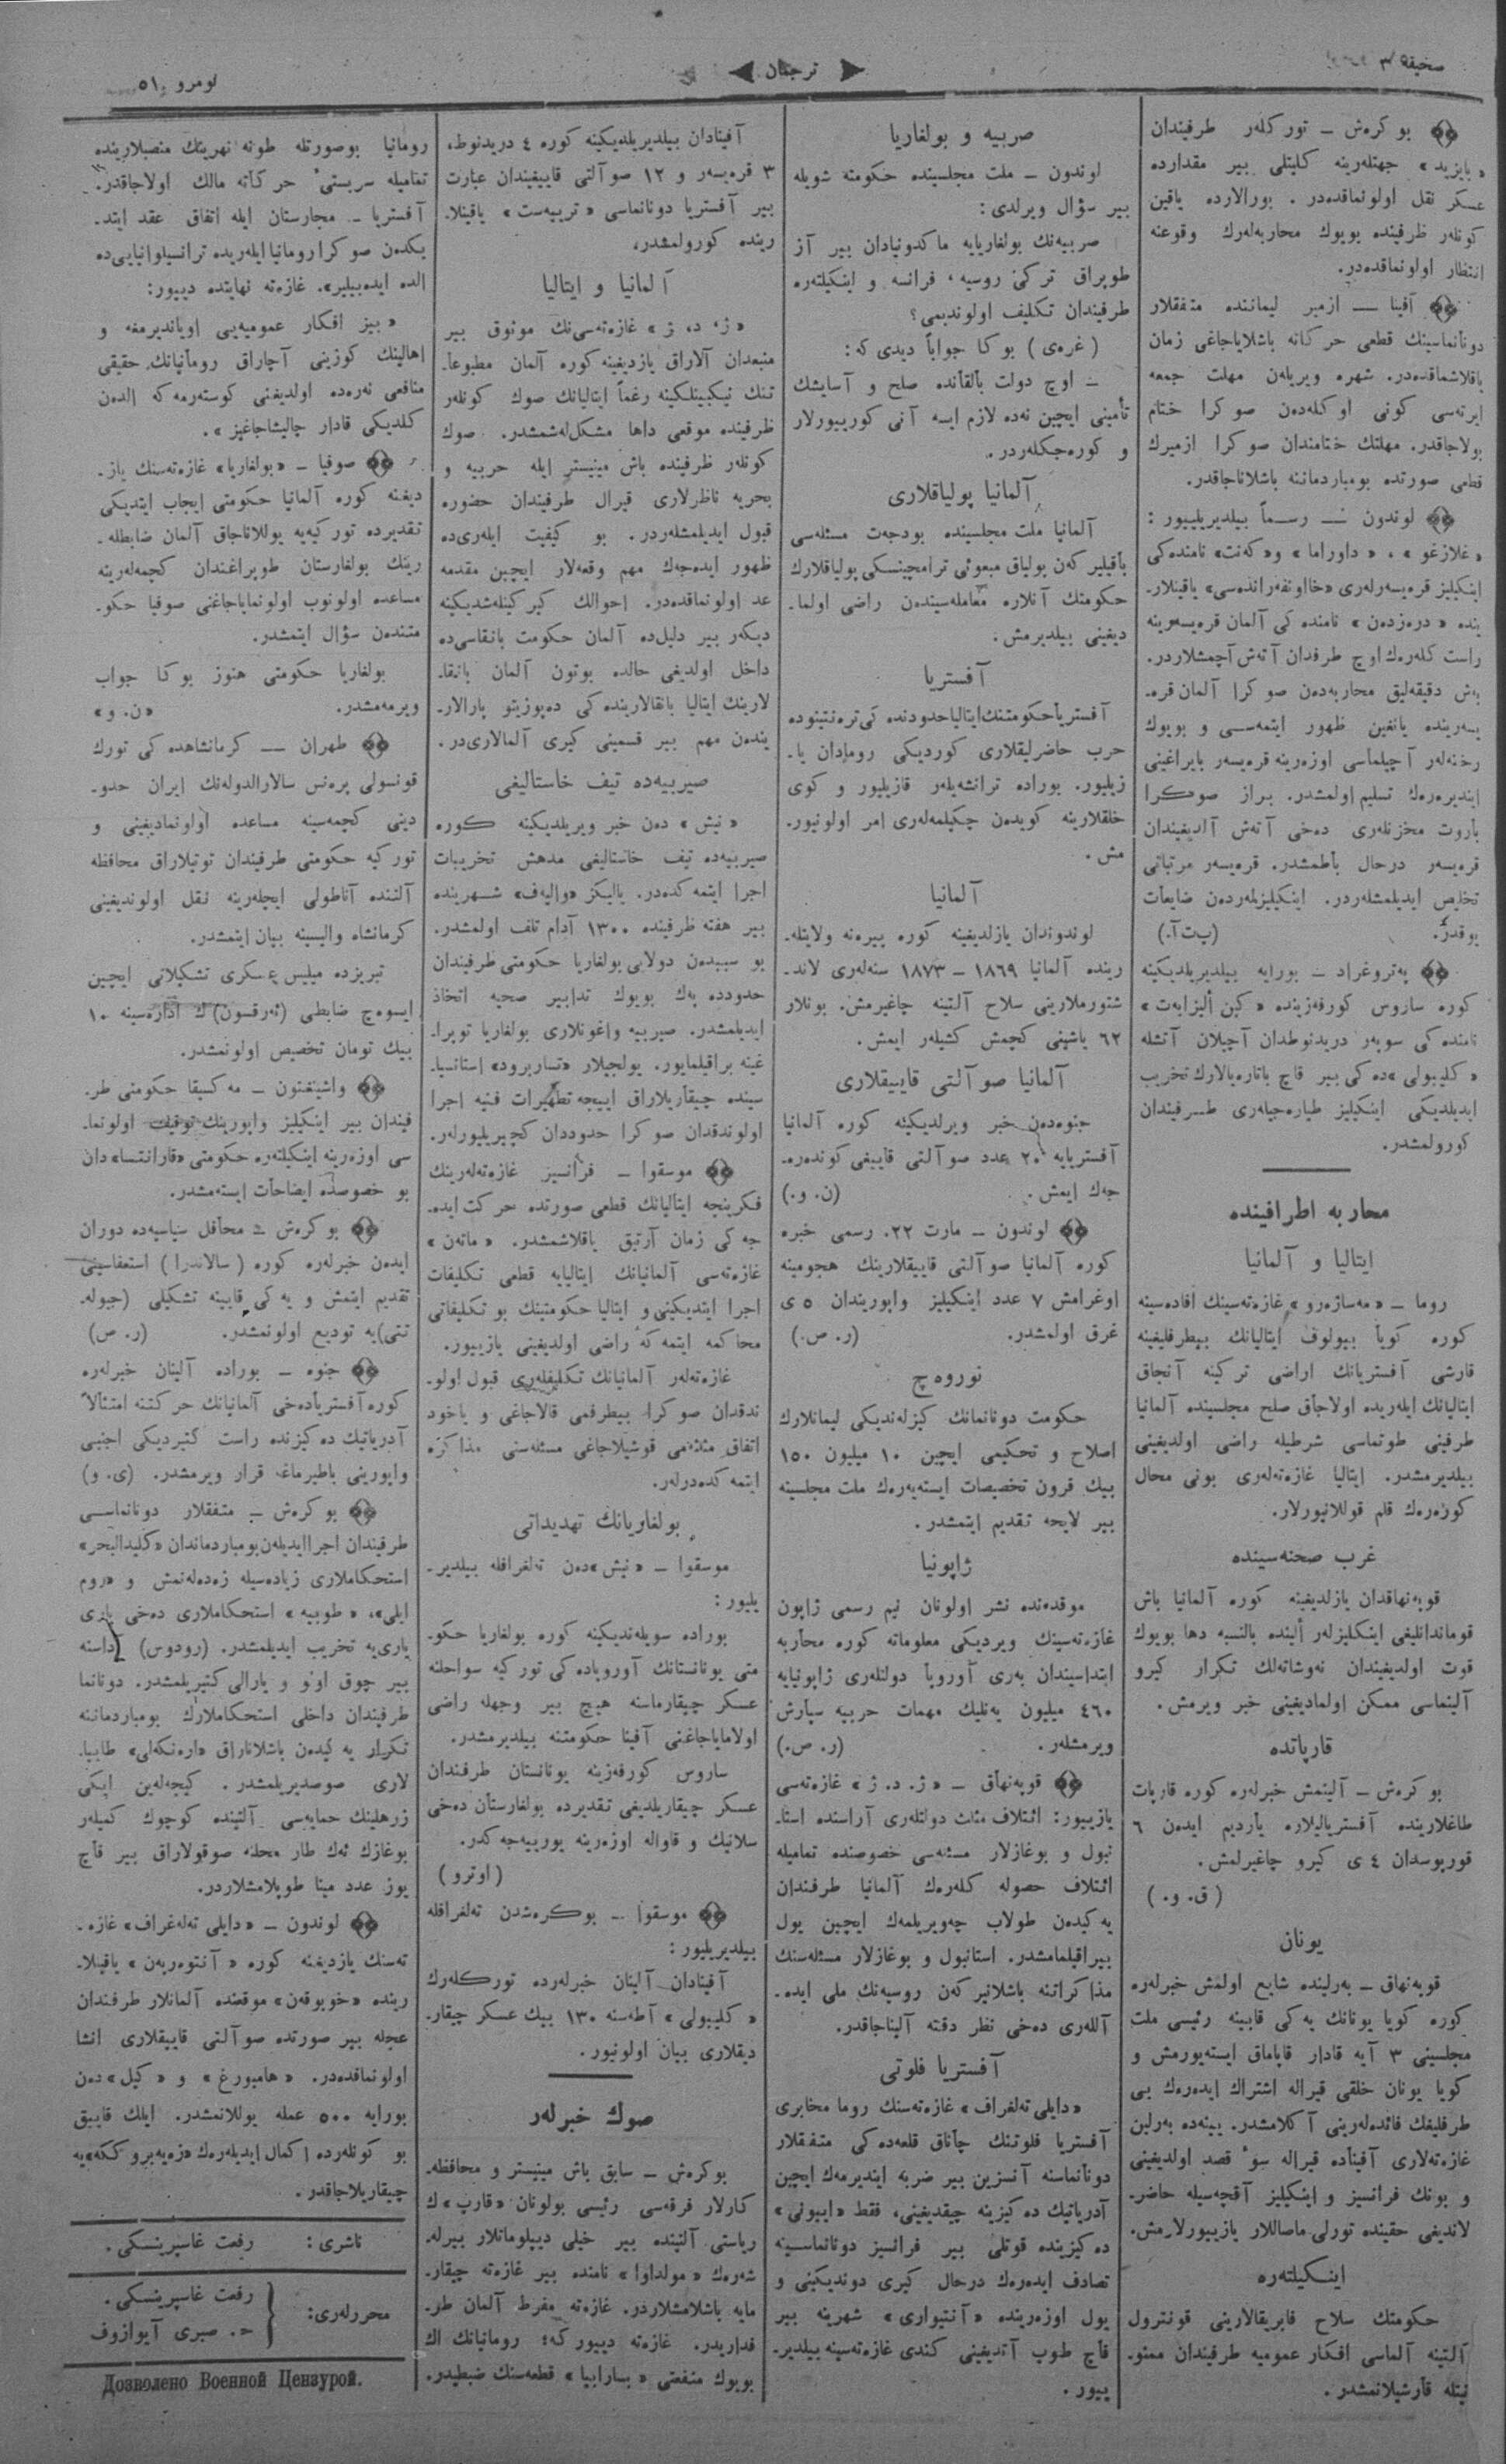 صحیفه ٣
ترجمان
نومرو ٥١
بوكرش – توركلەر طرفیندان
« بایزید » جهتلەرینه كلیتلی بیر مقدارده
عسكر نقل اولونماقدەدر . بورالارده یاقین
كونلەر ظرفینده بویوك محاربەلەرك وقوعنه
انتظار اولونماقدەدر.
آفینا — ازمیر لیماننده متفقلار
دونانماسینك قطعی حركاته باشلایاجاغی زمان
یاقلاشماقدەدر. شهره ویریلەن مهلت جمعه
ایرتەسی كونی اوكلەدەن صوكرا ختام
بولاجاقدر. مهلتك ختامندان صوكرا ازمیرك
قطعی صورتده بومباردماننه باشلاناجاقدر.
لوندون — رسماً بیلدیریلییور :
« غلازغو » ، « داوراما » و« كەنت» نامنده كی
اینكیلیز قرەیسەرلەری «خواونفەراندەسی» یاقینلار-
ینده « درەزدەن » نامنده كی آلمان قرەیسەرینه
راست كلەرەك اوچ طرفدان آتەش آچمشلاردر.
بەش دقیقەلیق محاربەدەن صوكرا آلمان قرە-
یسەرینده یانغین ظهور ایتمەسی و بویوك
رخنەلەر آچیلماسی اوزەرینه قرەیسەر بایراغینی
ایندیرەرەك تسلیم اولمشدر. براز صوكرا
باروت مخزنلەری دەخی آتەش آلدیغیندان
قرەیسەر درحال باطمشدر. قرەیسەر مرتباتی
تخلیص ایدیلمشلەردر. اینكیلیزلەردەن ضایعات
یوقدر. (پ‌ت‌آ.)
پەتروغراد – بورایه بیلدیریلدیكینه
كوره ساروس كورفەزینده « كین ألیزابەت »
نامنده كی سوپەر دریدنوطدان آچیلان آتشله
« كلیبولی »ده كی بیر قاچ باتارەیالارك تخریب
ایدیلدیكی اینكیلیز طیارەجیلەری طرفیندان
كورولمشدر.
محاربه اطرافینده
ایتالیا و آلمانیا
روما – «مەساژەرو» غازەتەسینك افادەسینه
كوره كویا بیولوف ایتالیانك بیطرفلیغینه
قارشی آفستریانك اراضی تركینه آنجاق
ایتالیانك ایلەریده اولاجاق صلح مجلسینده آلمانیا
طرفینی طوتماسی شرطیله راضی اولدیغینی
بیلدیرمشدر. ایتالیا غازەتەلەری بونی محال
كورەرەك قلم قوللانیورلار.
غرب صحنەسینده
قوپەنهاقدان یازلدیغینه كوره آلمانیا باش
قوماندانلیغی اینكیلیزلەر ألینده بالنسبه دها بویوك
قوت اولدیغیندان نەوشاتەلك تكرار كیرو
آلینماسی ممكن اولمادیغینی خبر ویرمش.
قارپاتده
بوكرش – آلینمش خبرلەره كوره قارپات
طاغلارینده آفستریالیلاره یاردیم ایدەن ٦
قورپوسدان ٤ ی كیرو چاغیرلمش.
(ق. و.)
یونان
قوپەنهاق – بەرلینده شایع اولمش خبرلەره
كوره كویا یونانك یەكی قابینه رئیسی ملت
مجلسینی ٣ آیه قادار قاپاماق ایستەیورمش و
كویا یونان خلقی قیراله اشتراك ایدەرەك بی
طرفلیغك فائدەلەرینی آكلامشدر. ینەده بەرلین
غازەتەلاری آفیناده قیراله سوء قصد اولدیغینی
و بونك فرانسیز و اینكیلیز آقچەسیله حاضر-
لاندیغی حقینده تورلی ماصاللار یازییورلارمش.
اینكیلتەره
حكومتك سلاح فابریقالارینی قونترول
آلتینه آلماسی افكار عمومیه طرفیندان ممنو-
نیتله قارشیلانمشدر .
صربیه و بولغاریا
لوندون – ملت مجلسینده حكومته شویله
بیر سؤال ویرلدی :
صربیەنك بولغاریایه ماكدونیادان بیر آز
طوپراق تركنی روسیه ، فرانسه و اینكیلتەره
طرفیندان تكلیف اولوندیمی؟
( غرەی ) بوكا جواباً دیدی كه :
– اوچ دولت بالقانده صلح و آسایشك
تأمینی ایچین نەده لازم ایسه آنی كورییورلار
و كورەجكلەردر.
آلمانیا پولیاقلاری
آلمانیا ملت مجلسینده بودجەت مسئلەسی
باقیلیركەن پولیاق مبعوثی ترامچینسكی پولیاقلارك
حكومتك آنلاره معاملەسیندەن راضی اولما-
دیغینی بیلدیرمش.
آفستریا
آفستریا حكومتنك ایتالیا حدودنده كی ترەنتینوده
حرب حاضرلیقلاری كوردیكی رومادان یا-
زیلیور. بوراده ترانشەیلەر قازیلیور و كوی
خلقلارینه كویدەن چكیلمەلەری امر اولونیور-
مش .
آلمانیا
لوندوندان یازلدیغینه كوره پیرەنه ولایتلە-
رینده آلمانیا ١٨٦٩ – ١٨٧٣ سنەلەری لاند-
شتورملارینی سلاح آلتینه چاغیرمش. بونلار
٦٢ یاشینی كچمش كشیلەر ایمش.
آلمانیا صو آلتی قاییقلاری
جنوەدەن خبر ویرلدیكینه كوره آلمانیا
آفستریایه ٢٠ عدد صو آلتی قاییغی كوندەرە-
جەك ایمش. (ن. و.)
لوندون – مارت ٢٢. رسمی خبره
كوره آلمانیا صو آلتی قاییقلارینك هجومینه
اوغرامش ٧ عدد اینكیلیز واپوریندان ٥ ی
غرق اولمشدر. (ر. ص.)
نوروەچ
حكومت دونانمانك كیزلەندیكی لیمانلارك
اصلاح و تحكیمی ایچین ١٠ میلیون ١٥٠
بیك قرون تخصیصات ایستەیەرەك ملت مجلسینه
بیر لایحه تقدیم ایتمشدر.
ژاپونیا
موقدەنده نشر اولونان نیم رسمی ژاپون
غازەتەسینك ویردیكی معلوماته كوره محاربه
ابتداسیندان بەری آوروپا دولتلەری ژاپونیایه
٤٦٠ میلیون یەنلیك مهمات حربیه سپارش
ویرمشلەر. (ر. ص.)
قوپەنهاق – « ژ. د. ژ » غازەتەسی
یازییور: ائتلاف مثلث دولتلەری آراسنده استا-
نبول و بوغازلار مسئلەسی خصوصنده تمامیله
ائتلاف حصوله كلەرەك آلمانیا طرفندان
یەكیدەن طولاب چەویریلمەك ایچین یول
بیراقیلمامشدر. استانبول و بوغازلار مسئلەسنك
مذاكراتنه باشلانیركەن روسیەنك ملی ایدە-
آللەری دەخی نظر دقته آلیناجاقدر.
آفستریا فلوتی
«دایلی تەلغراف» غازەتەسنك روما مخابری
آفستریا فلوتنك چاناق قلعەده كی متفقلار
دونانماسنه آنسزین بیر ضربه ایندیرمەك ایچین
آدریاتیك دەكیزینه چیقدیغینی، فقط « ایپونی »
دەكیزینده قوتلی بیر فرانسیز دونانماسینه
تصادف ایدەرەك درحال كیری دوندیكینی و
یول اوزەرینده « آنتیواری » شهرینه بیر
قاچ طوپ آتدیغینی كندی غازەتەسینه بیلدیر-
ییور .
آفینادان بیلدیریلدیكینه كوره ٤ دریدنوط،
٣ قرەیسەر و ١٢ صو آلتی قاییغیندان عبارت
بیر آفستریا دونانماسی « تریەست » یاقینلا-
رینده كورولمشدر.
آلمانیا و ایتالیا
« ژ. د. ژ » غازەتەسی‌نك موثوق بیر
منبعدان آلاراق یازدیغینه كوره آلمان مطبوعا-
تنك نیكبینلكینه رغماً ایتالیانك صوك كونلەر
ظرفینده موقعی داها مشكل‌لەشمشدر. صوك
كونلەر ظرفینده باش مینیستر ایله حربیه و
بحریه ناظرلاری قیرال طرفیندان حضوره
قبول ایدیلمشلەردر. بو كیفیت ایلەریده
ظهور ایدەجەك مهم وقعەلار ایچین مقدمه
عد اولونماقدەدر. احوالك كیركینلەشدیكینه
دیكەر بیر دلیل‌ده آلمان حكومت بانقاسی‌ده
داخل اولدیغی حالده بوتون آلمان بانقا-
لارینك ایتالیا بانقالارینده كی دەپوزیتو پارالار-
یندەن مهم بیر قسمینی كیری آلمالاری‌در.
صیربیەده تیف خاستالیغی
« نیش » دەن خبر ویریلدیكینه كوره
صیربیەده تیف خاستالیغی مدهش تخریبات
اجرا ایتمەكدەدر. یالیكز «والیەف» شهرینده
بیر هفته ظرفینده ١٣٠٠ آدام تلف اولمشدر.
بو سببدەن دولایی بولغاریا حكومتی طرفیندان
حدودده یەك بویوك تدابیر صحیه اتخاذ
ایدیلمشدر. صیربیه واغونلاری بولغاریا توپرا-
غینه براقیلمایور. یولجیلار «تساربرود» استانسیا-
سینده چیقاریلاراق اییجه تطهیرات فنیه اجرا
اولوندقدان صوكرا حدوددان كچیریلیورلەر.
موسقوا – فرانسیز غازەتەلەرینك
فكرینجه ایتالیانك قطعی صورتده حركت ایدە-
جەكی زمان آرتیق یاقلاشمشدر. « ماتەن »
غازەتەسی آلمانیانك ایتالیایه قطعی تكلیفات
اجرا ایتدیكینی و ایتالیا حكومتینك بو تكلیفاتی
محاكمه ایتمەكه راضی اولدیغینی یازییور.
غازەتەلەر آلمانیانك تكلیفلەری قبول اولو-
ندقدان صوكرا بیطرفمی قالاجاغی و یاخود
اتفاق مثلثمی قوشیلاجاغی مسئلەسنی مذاكره
ایتمەكدەدرلەر.
بولغاریانك تهدیداتی
موسقوا – « نیش »دەن تەلغرافله بیلدیر-
یلیور :
بوراده سویلەندیكینه كوره بولغاریا حكو-
متی یونانستانك آوروپاده كی توركیه سواحلنه
عسكر چیقارماسنه هیچ بیر وجهله راضی
اولامایاجاغنی آفینا حكومتنه بیلدیرمشدر.
ساروس كورفەزینه یونانستان طرفندان
عسكر چیقاریلدیغی تقدیرده بولغارستان دەخی
سلانیك و قاواله اوزەرینه یورییەجەكدر.
( اوترو )
موسقوا – بوكرەشدن تەلغرافله
بیلدیریلیور :
آفینادان آلینان خبرلەرده توركلەرك
« كلیبولی » آطەسنه ١٣٠ بیك عسكر چیقار-
دیقلاری بیان اولونیور.
صوك خبرلەر
بوكرش – سابق باش مینیستر و محافظە-
كارلار فرقەسی رئیسی بولونان «قارپ»ك
ریاستی آلتینده بیر خیلی دیپلوماتلار بیرلە-
شەرەك « مولداوا » نامنده بیر غازەته چیقار-
مایه باشلامشلاردر. غازەته مفرط آلمان طر-
فداریدر. غازەته دییور كه؛ رومانیانك اك
بویوك منفعتی « بسارابیا » قطعەسنك ضبطیدر.
رومانیا بوصورتله طونه نهرینك منصبلارینده
تمامیله سربستیء حركاته مالك اولاجاقدر.
آفستریا – مجارستان ایله اتفاق عقد ایتد-
یكدەن صوكرا رومانیا ایلەریده ترانسیلوانیایی‌ده
الده ایدەبیلیر». غازەته نهایتده دییور:
« بیز افكار عمومیەیی اویاندیرمغه و
اهالینك كوزینی آچاراق رومانیانك حقیقی
منافعی نەرەده اولدیغنی كوسترمەكه الدەن
كلدیكی قادار چالیشاجاغیز ».
صوفیا – «بولغاریا» غازەتەسنك یاز-
دیغنه كوره آلمانیا حكومتی ایجاب ایتدیكی
تقدیرده توركیەیه یوللاناجاق آلمان ضابطلە-
رینك بولغارستان طوپراغندان كچمەلەرینه
مساعده اولونوب اولونمایاجاغنی صوفیا حكو-
متندەن سؤال ایتمشدر.
بولغاریا حكومتی هنوز بوكا جواب
ویرمەمشدر. «ن. و»
طهران — كرمانشاهده كی تورك
قونسولی پرەنس سالارالدولەنك ایران حدو-
دینی كچمەسینه مساعده اولونمادیغینی و
توركیه حكومتی طرفیندان توتیلاراق محافظه
آلتنده آناطولی ایچلەرینه نقل اولوندیغینی
كرمانشاه والیسینه بیان ایتمشدر.
تبریزده میلیس عسكری تشكیلاتی ایچین
ایسوەچ ضابطی (ئەرقسون)ك ادارەسینه ١٠
بیك تومان تخصیص اولونمشدر.
واشینغتون – مەكسیقا حكومتی طر-
فیندان بیر اینكیلیز واپورینك توقیف اولونما-
سی اوزەرینه اینكیلتەره حكومتی «قارانتسا»دان
بو خصوصده ایضاحات ایستەمشدر.
بوكرش – محافل سیاسیەده دوران
ایدەن خبرلەره كوره (سالاندرا) استعفاسینی
تقدیم ایتمش و یەكی قابینه تشكیلی (جیولە-
تتی)یه تودیع اولونمشدر. (ر. ص)
جنوه – بوراده آلینان خبرلەره
كوره آفستریا دەخی آلمانیانك حركتنه امتثالاً
آدریاتیك دەكزنده راست كتیردیكی اجنبی
واپورینی باطیرماغه قرار ویرمشدر. (ی. و)
بوكرش – متفقلار دونانماسی
طرفیندان اجرا ایدیلەن بومباردماندان «كلیدالبحر»
استحكاملاری زیادەسیله زەدەلەنمش و «روم
ایلی»، « طوبیه » استحكاملاری دەخی یاری
یاری‌یه تخریب ایدیلمشدر. (رودوس) اداسنه
بیر چوق اولو و یارالی كتیریلمشدر. دونانما
طرفیندان داخلی استحكاملارك بومباردماننه
تكرار یەكیدەن باشلاناراق «ارەنكەلی» طابیا-
لاری صوصدیریلمشدر. كیجەلەین ایكی
زرهلینك حمایەسی آلتینده كوچوك كمیلەر
بوغازك ئەك طار محلنه صوقولاراق بیر قاچ
یوز عدد مینا طوپلامشلاردر.
لوندون – « دایلی تەلەغراف» غازە-
تەسنك یازدیغنه كوره « آنتوەرپەن » یاقینلا-
رینده «خوبوقەن» موقعنده آلمانلار طرفندان
عجله بیر صورتده صو آلتی قاییقلاری انشا
اولونماقدەدر. «هامبورغ» و « كیل »دەن
بورایه ٥٠٠ عمله یوللانمشدر. ایلك قاییق
بو كونلەرده اكمال ایدیلەرەك «زەیەبروككه»یه
چیقاریلاجاقدر.
ناشری : رفعت غاسپرینسكی.
محررلەری: رفعت غاسپرینسكی.
ح. صبری آیوازوف
Дозволено Военной Цензурой.